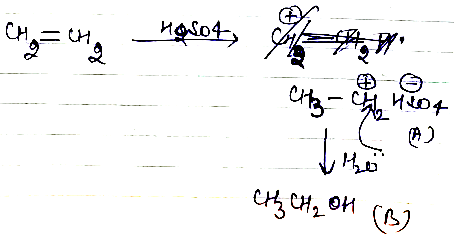 CH2=CH2 H2SO4
CH3 - CH2 ⊕ HSO4 ⊖
(A)
H2Ö
CH3CH2OH (B)